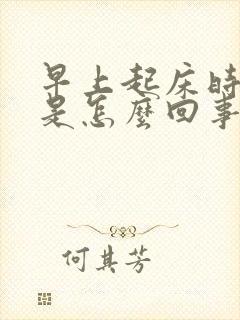 早上起床時
是怎麼回事
何其芳